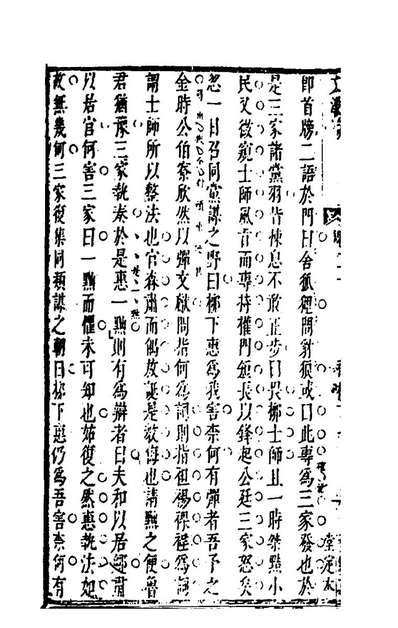 即首牓二語於門曰舍狐狸問豺狼或曰此專為三家發也於
是三家諸黨羽皆悚息不敢正步曰畏柳士師且一時桀黠小
民又微窺士師風旨而專持權門短長以鋒起公廷三家怒矣
忽一日召同黨謀之野曰柳下惠為我害奈何有彈者吾予之
金時公伯寮欣然以彈文獻問指何為詞則指袒裼裸裎為詞
謂士師所以整法也官森肅而偶放誕是敎侮也請黜之便魯
君猶豫三家執奏於是惠一黜則有為辯者曰夫和以居鄉肅
以居官何害三家曰一黜而懼未可知也姑復之然惠執法如
故無幾何三家復集同類謀之朝曰柳下惠仍為吾害奈何有